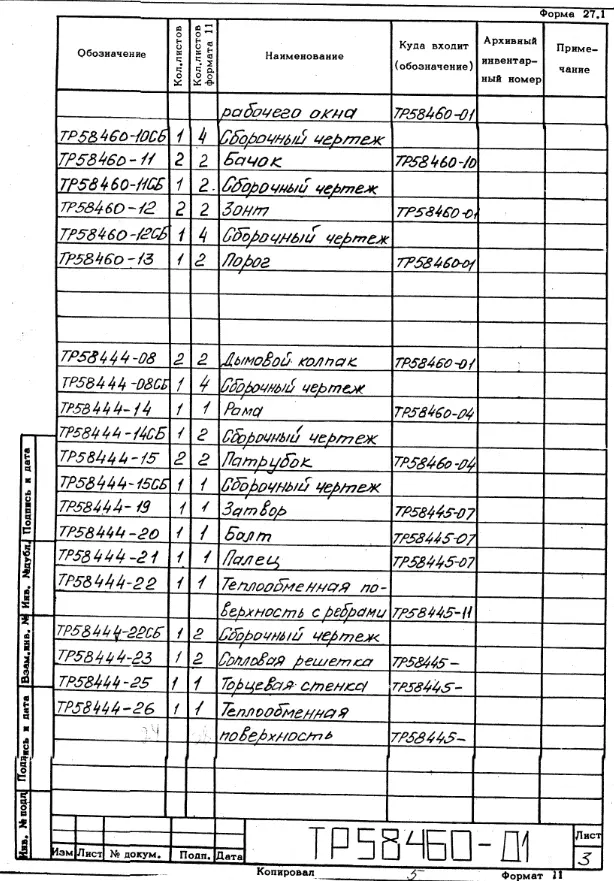 Форма 27.1
Обозначение Кол.листов Кол.листов формата 11 Наименование Куда входит (обозначение) Архивный инвентарный номер Примечание
рабочего окна ТР58460-01
ТР58460-10СБ 1 4 Сборочный чертеж
ТР58460-11 2 2 Бачок ТР58460-10
ТР58460-11СБ 1 2. Сборочный чертеж
ТР58460-12 2 2 Зонт ТР58460-01
ТР58460-12СБ 1 4 Сборочный чертеж
ТР58460-13 1 2 Порог ТР58460-01
ТР58444-08 2 2 Дымовой колпак ТР58460-01
ТР58444-08СБ 1 4 Сборочный чертеж
ТР58444-14 1 1 Рама ТР58460-04
ТР58444-14СБ 1 2 Сборочный чертеж
ТР58444-15 2 2 Патрубок ТР58460-04
ТР58444-15СБ 1 1 Сборочный чертеж
ТР58444-19 1 1 Затвор ТР58445-07
ТР58444-20 1 1 Болт ТР58445-07
ТР58444-21 1 1 Палец ТР58445-07
ТР58444-22 1 1 Теплообменная по-
верхность с ребрами ТР58445-11
ТР58444-22СБ 1 2 Сборочный чертеж
ТР58444-23 1 2 Сопловая решетка ТР58445-
ТР58444-25 1 1 Торцевая стенка ТР58445-
ТР58444-26 1 1 Теплообменная
поверхность ТР58445-
Инв. № подл Подпись и дата Взам.инв. № Инв. №дубл. Подпись и дата
Изм Лист № докум. Подп. Дата
ТР58460-Д1
Лист
3
Копировал 5 Формат 11